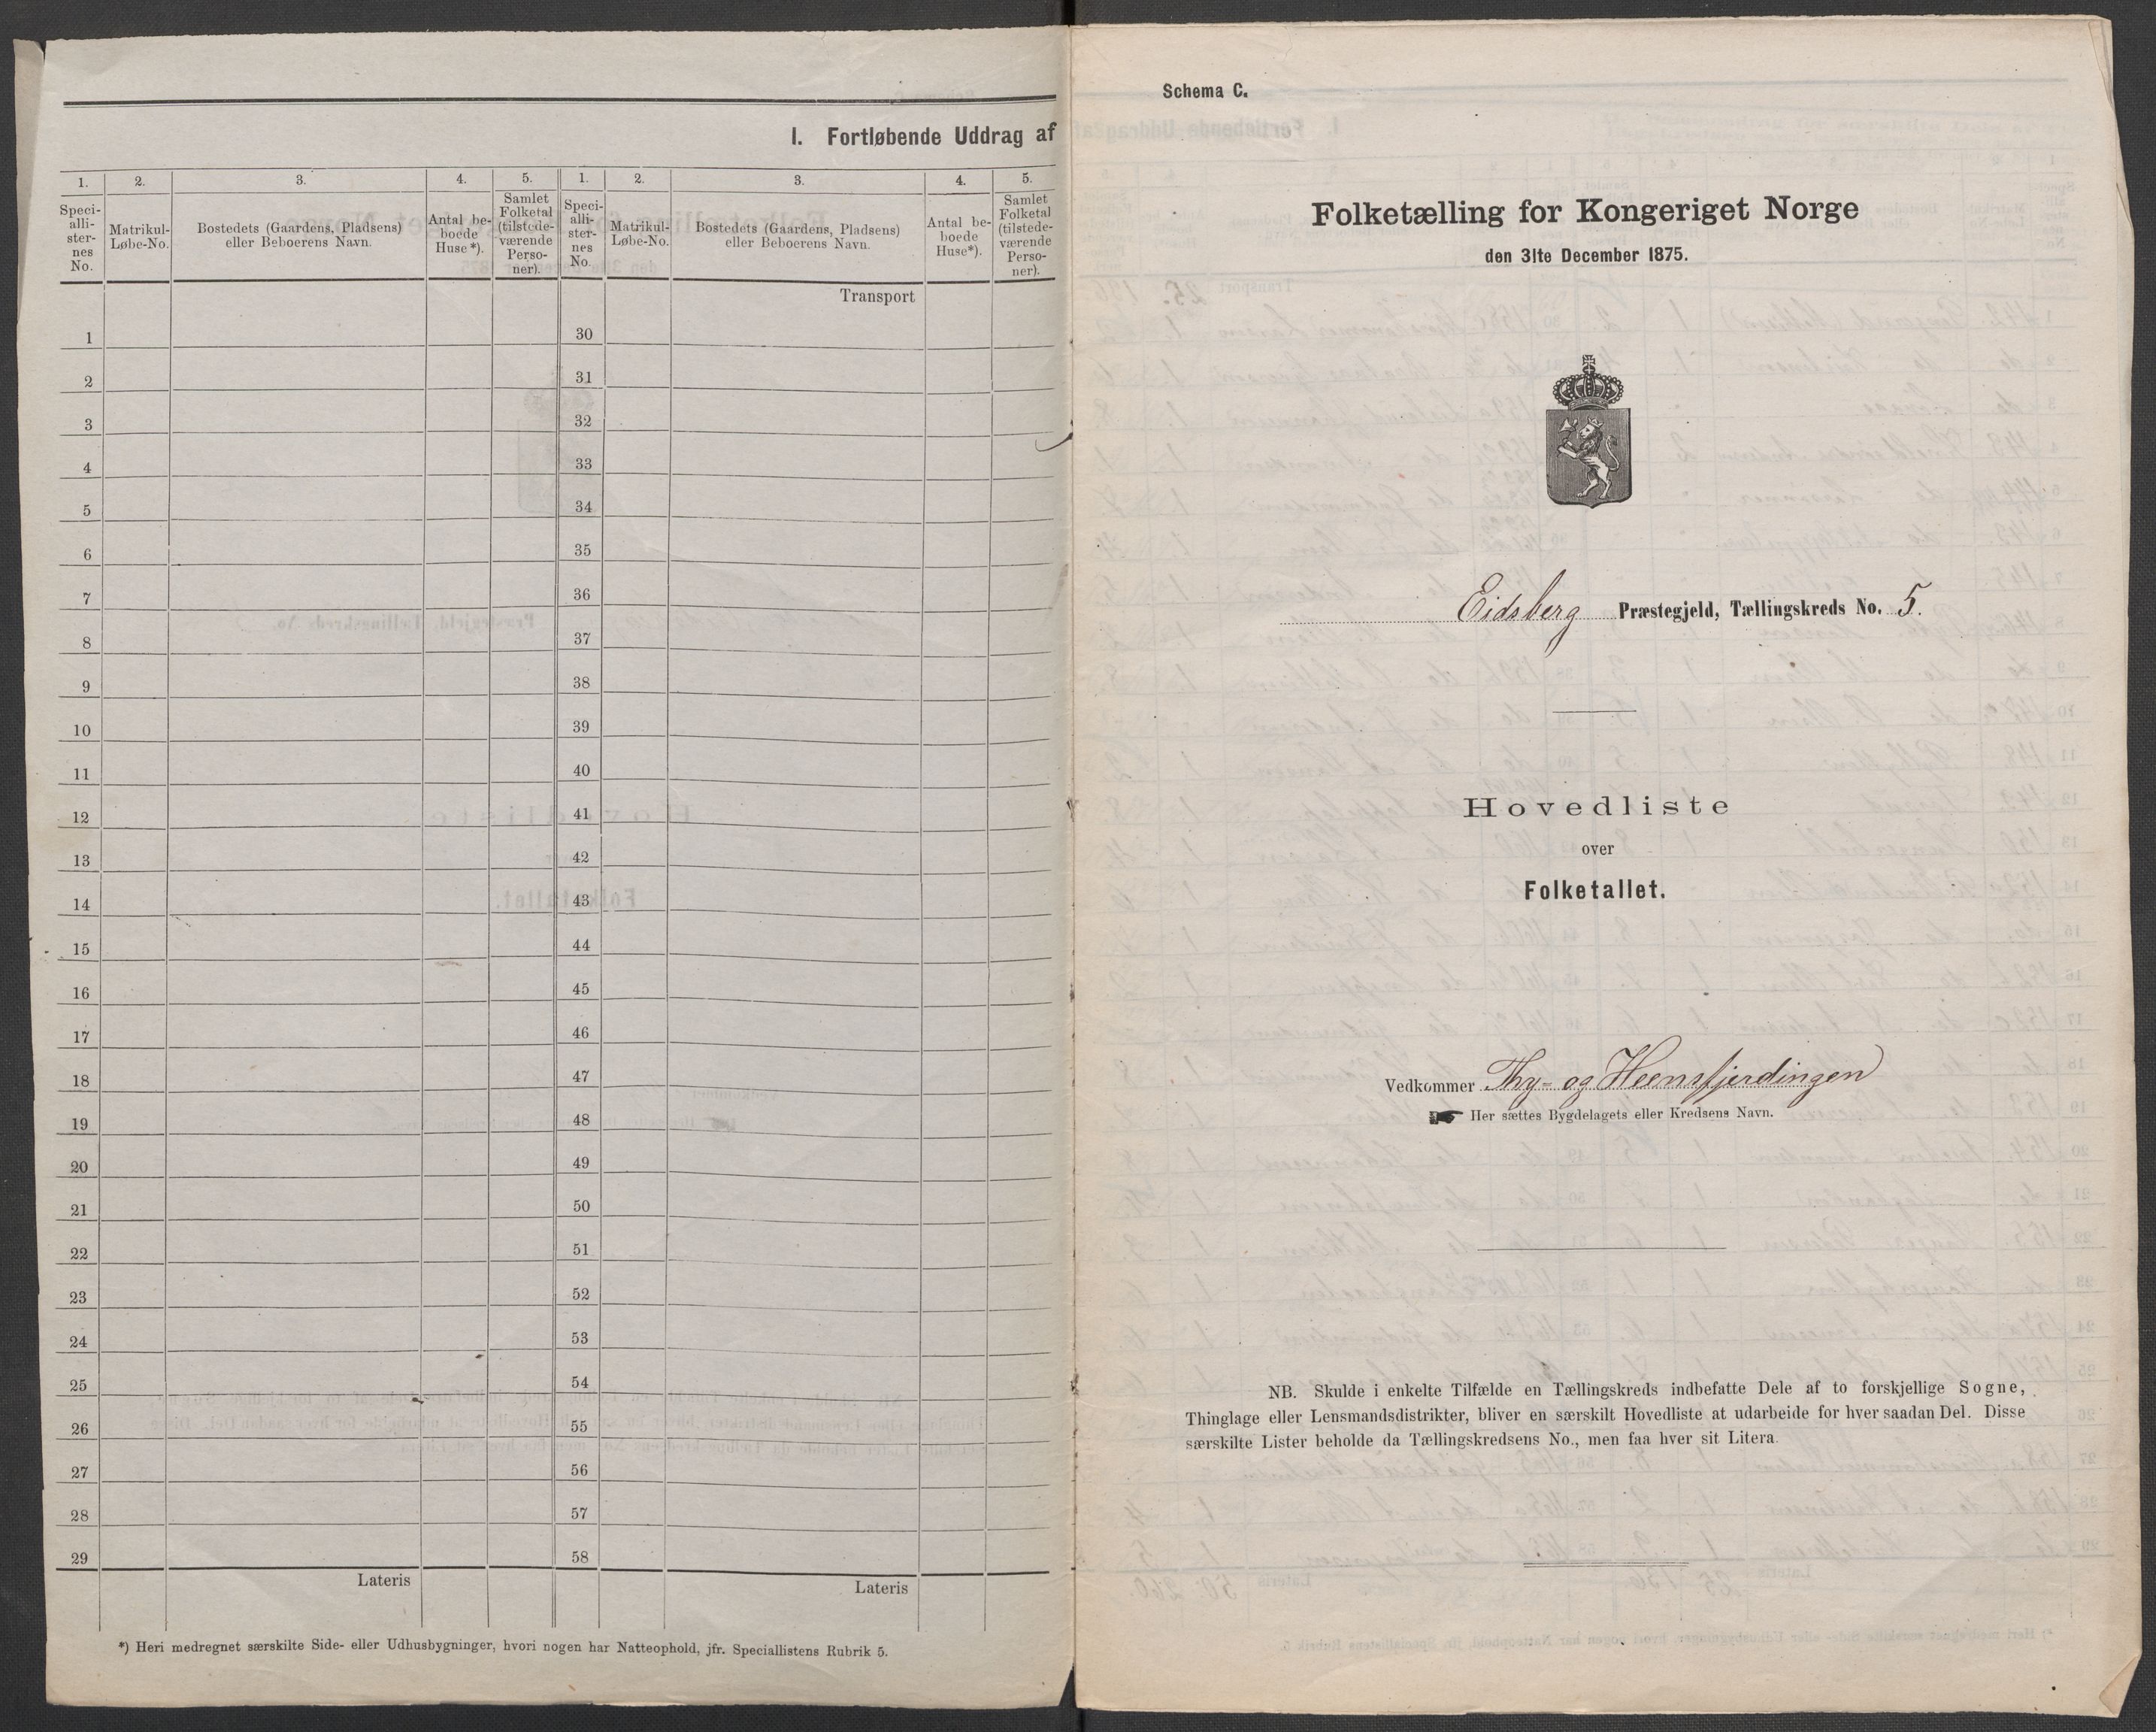 I. Fortløbende Uddrag af
1. 2. 3. 4. 5. 1. 2. 3. 4. 5.
Speci-
alli-
ster-
nes
No.
Matrikul-
Løbe-No.
Bostedets (Gaardens, Pladsens)
eller Beboerens Navn.
Antal be-
boede
Huse*).
Samlet
Folketal
(tilstede-
værende
Perso-
ner).
Speci-
alli-
ster-
nes
No.
Matrikul-
Løbe-No.
Bostedets (Gaardens, Pladsens)
eller Beboerens Navn.
Antal be-
boede
Huse*).
Samlet
Folketal
(tilstede-
værende
Perso-
ner).
Transport
1 30
2 31
3 32
4 33
5 34
6 35
7 36
8 37
9 38
10 39
11 40
12 41
13 42
14 43
15 44
16 45
17 46
18 47
19 48
20 49
21 50
22 51
23 52
24 53
25 54
26 55
27 56
28 57
29 58
Lateris Lateris
*) Heri medregnet særskilte Side- eller Udhusbygninger, hvori nogen har Natteophold, jfr. Speciallistens Rubrik 5.
Schema C.
Folketælling for Kongeriget Norge
den 31te December 1875.
Eidsberg Præstegjeld, Tællingskreds No. 5.
Hovedliste
over
Folketallet.
Vedkommer Thy- og Heensfjerdingen
Her sættes Bygdelagets eller Kredsens Navn.
NB. Skulde i enkelte Tilfælde en Tællingskreds indbefatte Dele af to forskjellige Sogne,
Thinglage eller Lensmandsdistrikter, bliver en særskilt Hovedliste at udarbeide for hver saadan Del. Disse
særskilte Lister beholde da Tællingskredsens No., men faa hver sit Litera.